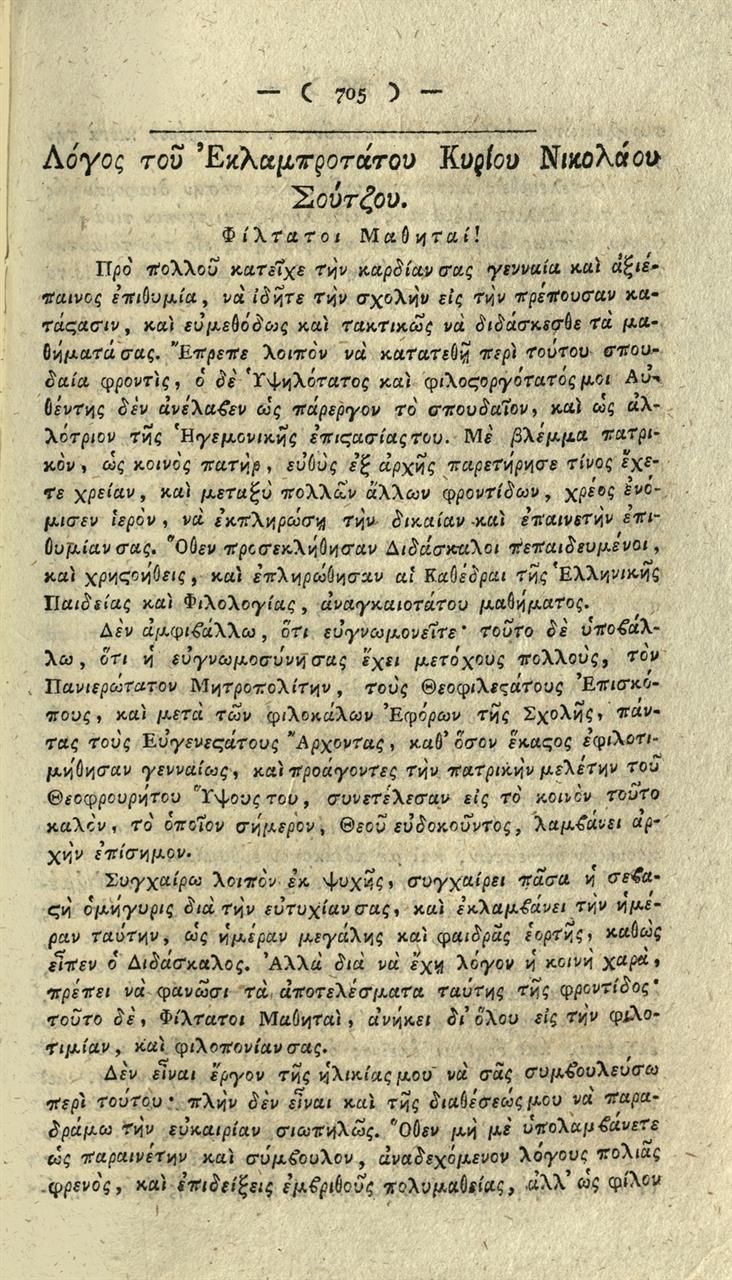 — ( 705 ) —
Λόγος τοῦ Ἐκλαμπροτάτου Κυρίου Νικολάου
Σούτζου.
Φίλτατοι Μαθηταί!
Πρὸ πολλοῦ κατεῖχε τὴν καρδίαν σας γενναία καὶ ἀξιέ-
παινος ἐπιθυμία, νὰ ἰδῆτε τὴν σχολὴν εἰς τὴν πρέπουσαν κα-
τάϛασιν, καὶ εὐμεθόδως καὶ τακτικῶς νὰ διδάσκεσθε τὰ μα-
θήματά σας. Ἔπρεπε λοιπὸν νὰ κατατεθῇ περὶ τούτου σπου-
δαία φροντὶς, ὁ δὲ Ὑψηλότατος καὶ φιλοϛοργότατός μοι Αὐ-
θέντης δὲν ἀνέλαβεν ὡς πάρεργον τὸ σπουδαῖον, καὶ ὡς ἀλ-
λότριον τῆς Ἡγεμονικῆς ἐπιϛασίας του. Μὲ βλέμμα πατρι-
κὸν, ὡς κοινὸς πατὴρ, εὐθὺς ἐξ ἀρχῆς παρετήρησε τίνος ἔχε-
τε χρείαν, καὶ μεταξὺ πολλῶν ἄλλων φροντίδων, χρέος ἐνό-
μισεν ἱερὸν, νὰ ἐκπληρώσῃ τὴν δικαίαν καὶ ἐπαινετὴν ἐπι-
θυμίαν σας. Ὅθεν προσεκλήθησαν Διδάσκαλοι πεπαιδευμένοι,
καὶ χρηϛοήθεις, καὶ ἐπληρώθησαν αἱ Καθέδραι τῆς Ἑλληνικῆς
Παιδείας καὶ Φιλολογίας, ἀναγκαιοτάτου μαθήματος.
Δὲν ἀμφιβάλλω, ὅτι εὐγνωμονεῖτε· τοῦτο δὲ ὑποβάλ-
λω, ὅτι ἡ εὐγνωμοσύνη σας ἔχει μετόχους πολλοὺς, τὸν
Πανιερώτατον Μητροπολίτην, τοὺς Θεοφιλεϛάτους Ἐπισκό-
πους, καὶ μετὰ τῶν φιλοκάλων Ἐφόρων τῆς Σχολῆς, πάν-
τας τοὺς Εὐγενεϛάτους Ἄρχοντας, καθ' ὅσον ἕκαϛος ἐφιλοτι-
μήθησαν γενναίως, καὶ προάγοντες τὴν πατρικὴν μελέτην τοῦ
Θεοφρουρήτου Ὕψους του, συνετέλεσαν εἰς τὸ κοινὸν τοῦτο
καλὸν, τὸ ὁποῖον σήμερον, Θεοῦ εὐδοκοῦντος, λαμβάνει ἀρ-
χὴν ἐπίσημον.
Συγχαίρω λοιπὸν ἐκ ψυχῆς, συγχαίρει πᾶσα ἡ σεβα-
ϛὴ ὁμήγυρις διὰ τὴν εὐτυχίαν σας, καὶ ἐκλαμβάνει τὴν ἡμέ-
ραν ταύτην, ὡς ἡμέραν μεγάλης καὶ φαιδρᾶς ἑορτῆς, καθὼς
εἶπεν ὁ Διδάσκαλος. Ἀλλὰ διὰ νὰ ἔχῃ λόγον ἡ κοινὴ χαρὰ,
πρέπει νὰ φανῶσι τὰ ἀποτελέσματα ταύτης τῆς φροντίδος·
τοῦτο δὲ, Φίλτατοι Μαθηταὶ, ἀνήκει δι' ὅλου εἰς τὴν φιλο-
τιμίαν, καὶ φιλοπονίαν σας.
Δὲν εἶναι ἔργον τῆς ἡλικίας μου νὰ σᾶς συμβουλεύσω
περὶ τούτου· πλὴν δὲν εἶναι καὶ τῆς διαθέσεώς μου νὰ παρα-
δράμω τὴν εὐκαιρίαν σιωπηλῶς. Ὅθεν μὴ μὲ ὑπολαμβάνετε
ὡς παραινέτην καὶ σύμβουλον, ἀναδεχόμενον λόγους πολιᾶς
φρενὸς, καὶ ἐπιδείξεις ἐμβριθοῦς πολυμαθείας, ἀλλ' ὡς φίλον